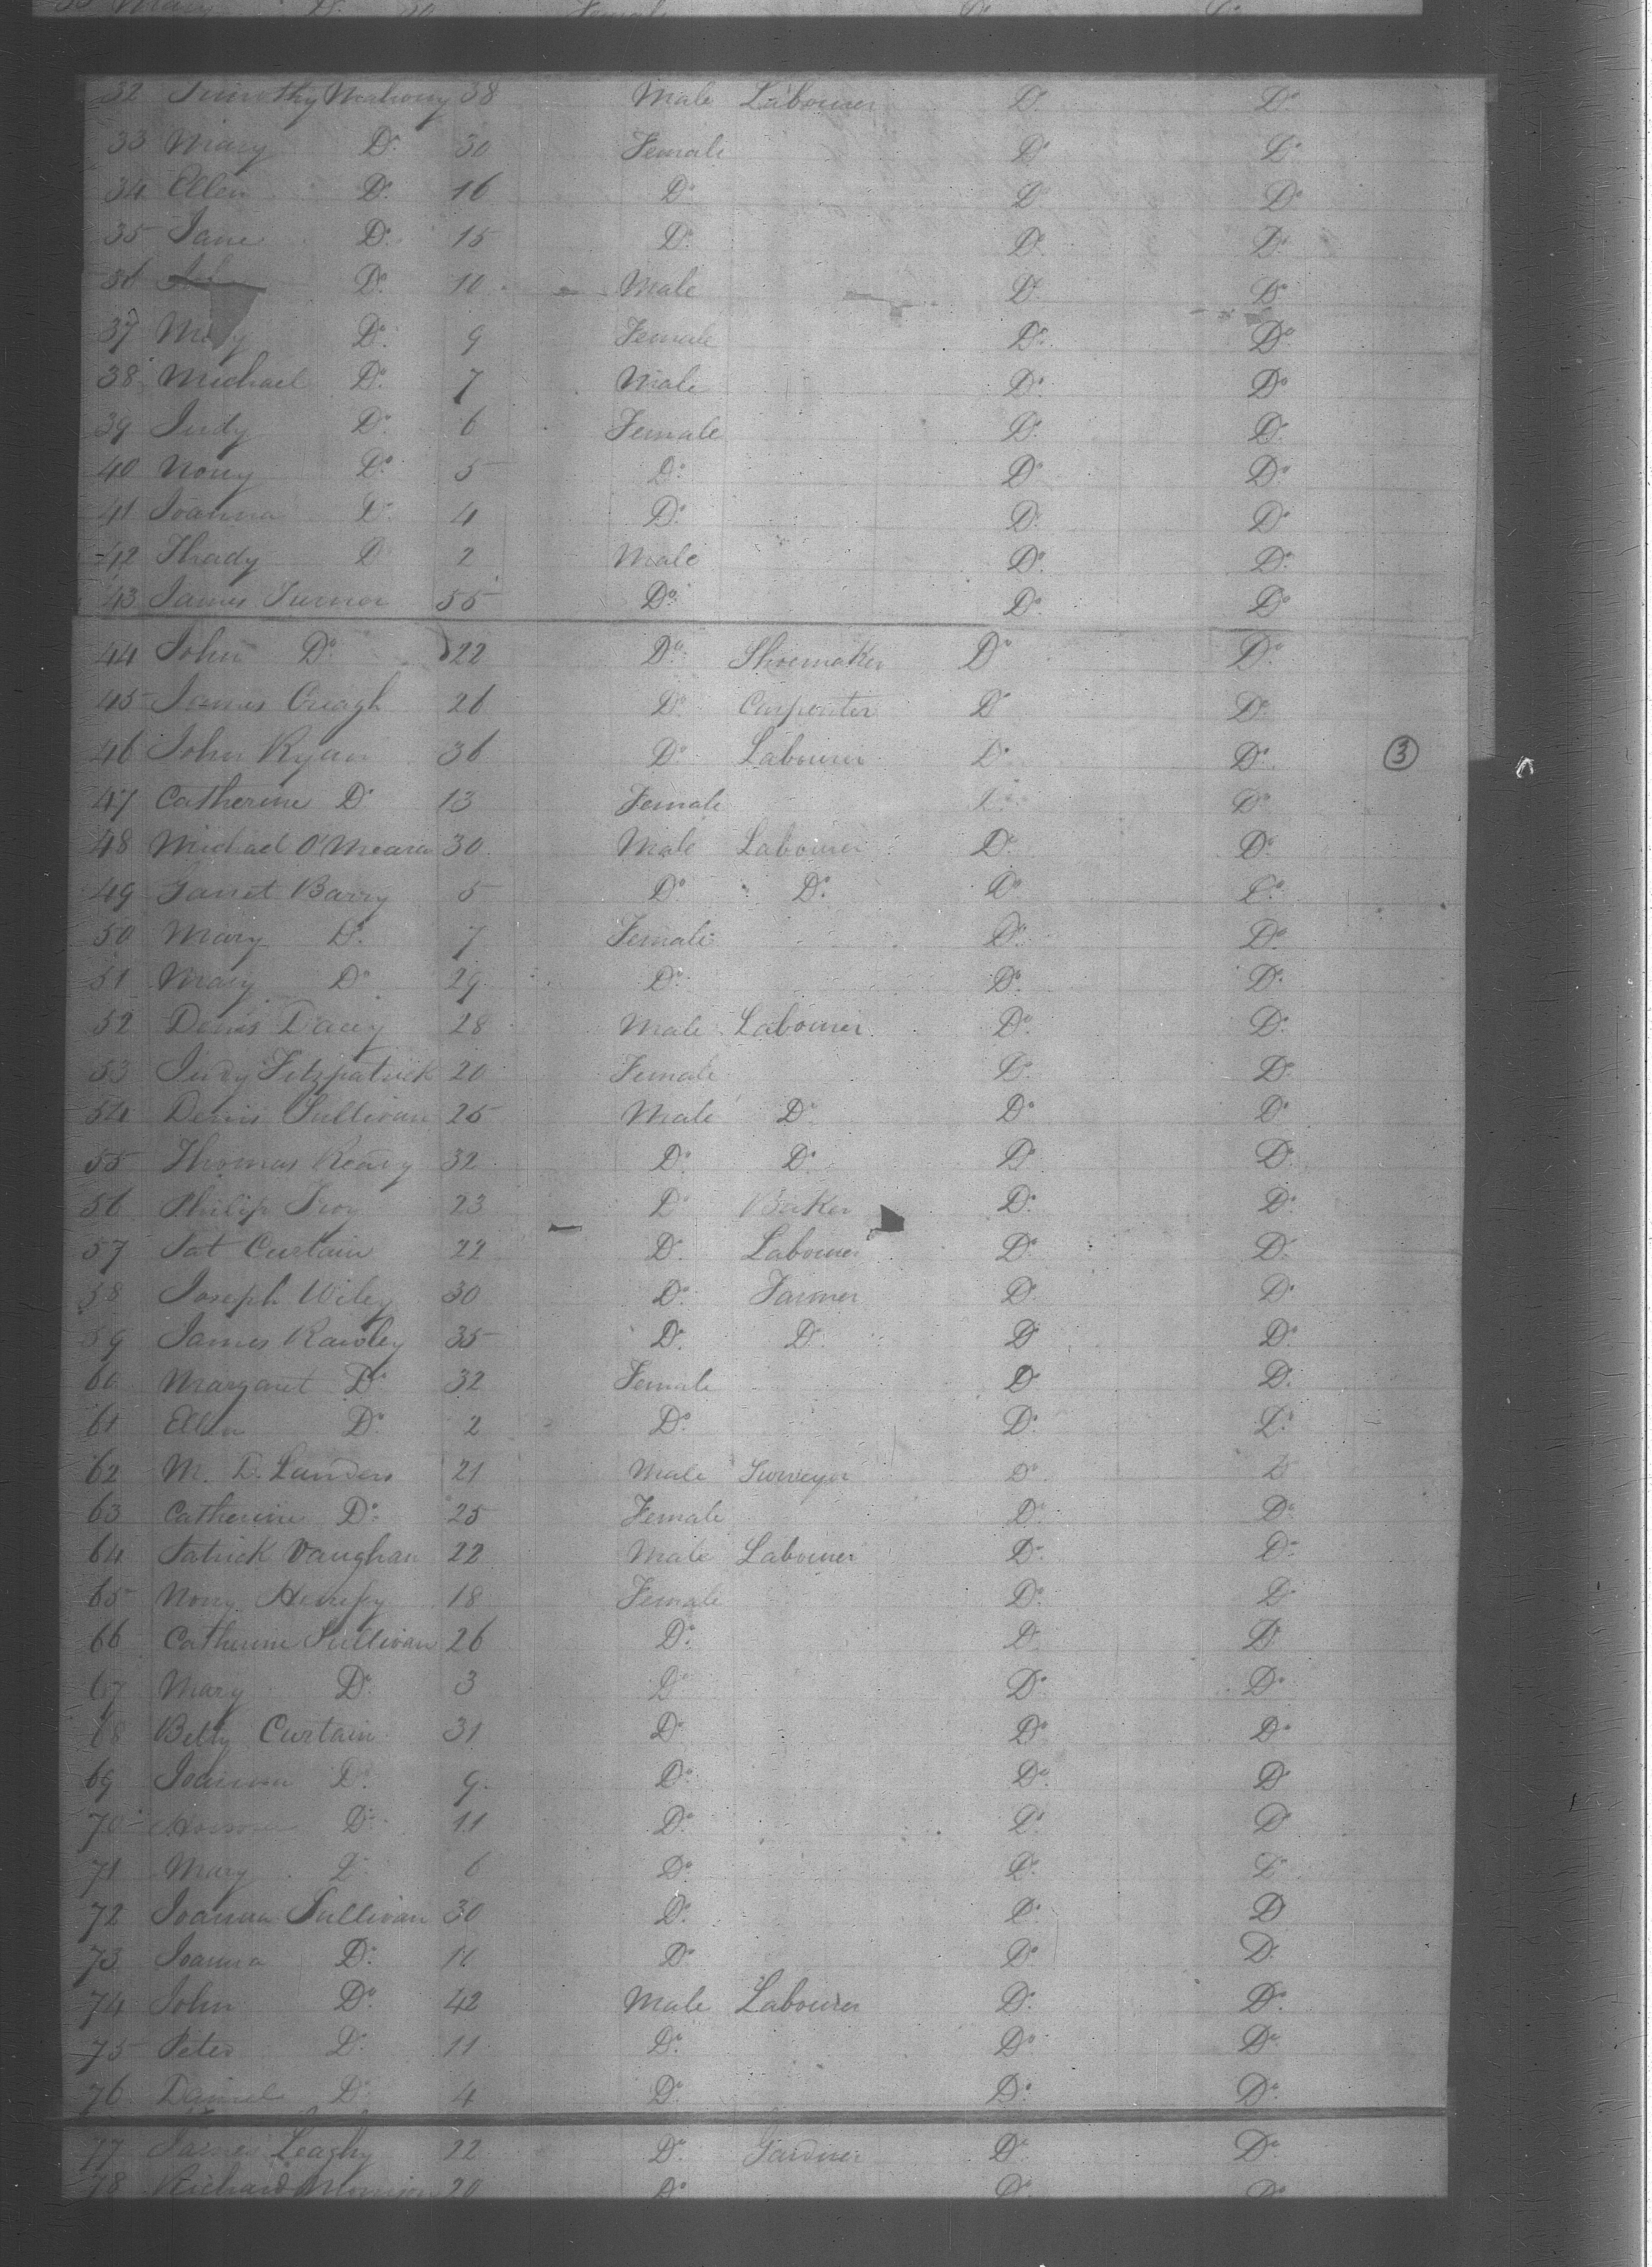 33 Mary Do 30 Female Do Do
32 Timothy Mahony 38 Male Labourer Do Do
33 Mary Do 30 Female Do Do
34 Ellen Do 16 Do Do Do
35 Jane Do 15 Do Do Do
36 Do 10 Male Do Do
37 Mary Do 9 Female Do Do
38 Michael Do 7 Male Do Do
39 Judy Do 6 Female Do Do
40 Nony Do 5 Do Do Do
41 Joanna Do 4 Do Do Do
42 Thady Do 2 Male Do Do
43 James Turner 55 Do Do Do
44 John Do 22 Do Shoemaker Do Do
45 James Creagh 26 Do Carpenter Do Do
46 John Ryan 36 Do Labourer Do Do 3
47 Catherine Do 13 Female Do Do
48 Michael O'Meara 30 Male Labourer Do Do
49 Garret Barry 5 Do Do Do Do
50 Mary Do 7 Female Do Do
51 Mary Do 29 Do Do Do
52 Denis Dacey 28 Male Labourer Do Do
53 Judy Fitzpatrick 20 Female Do Do
54 Denis Sullivan 25 Male Do Do Do
55 Thomas 32 Do Do Do Do
56 Philip 23 Do Baker Do Do
57 Pat Curtain 22 Do Labourer Do Do
58 Joseph Wiley 30 Do Farmer Do Do
59 James Rawley 35 Do Do Do Do
60 Margaret Do 32 Female Do Do
61 Ellen Do 2 Do Do Do
62 M. D. Landers 21 Male Surveyor Do Do
63 Catherine Do 25 Female Do Do
64 Patrick Vaughan 22 Male Labourer Do Do
65 Nony 18 Female Do Do
66 Catherine Sullivan 26 Do Do Do
67 Mary Do 3 Do Do Do
68 Betty Curtain 31 Do Do Do
69 Joanna Do 9 Do Do Do
70 Do 11 Do Do Do
71 Mary Do 6 Do Do Do
72 Joanna Sullivan 30 Do Do Do
73 Joanna Do 11 Do Do Do
74 John Do 42 Male Labourer Do Do
75 Peter Do 11 Do Do Do
76 Daniel Do 4 Do Do Do
77 James Leaghy 22 Do Gardner Do Do
78 Richard 20 Do Do Do